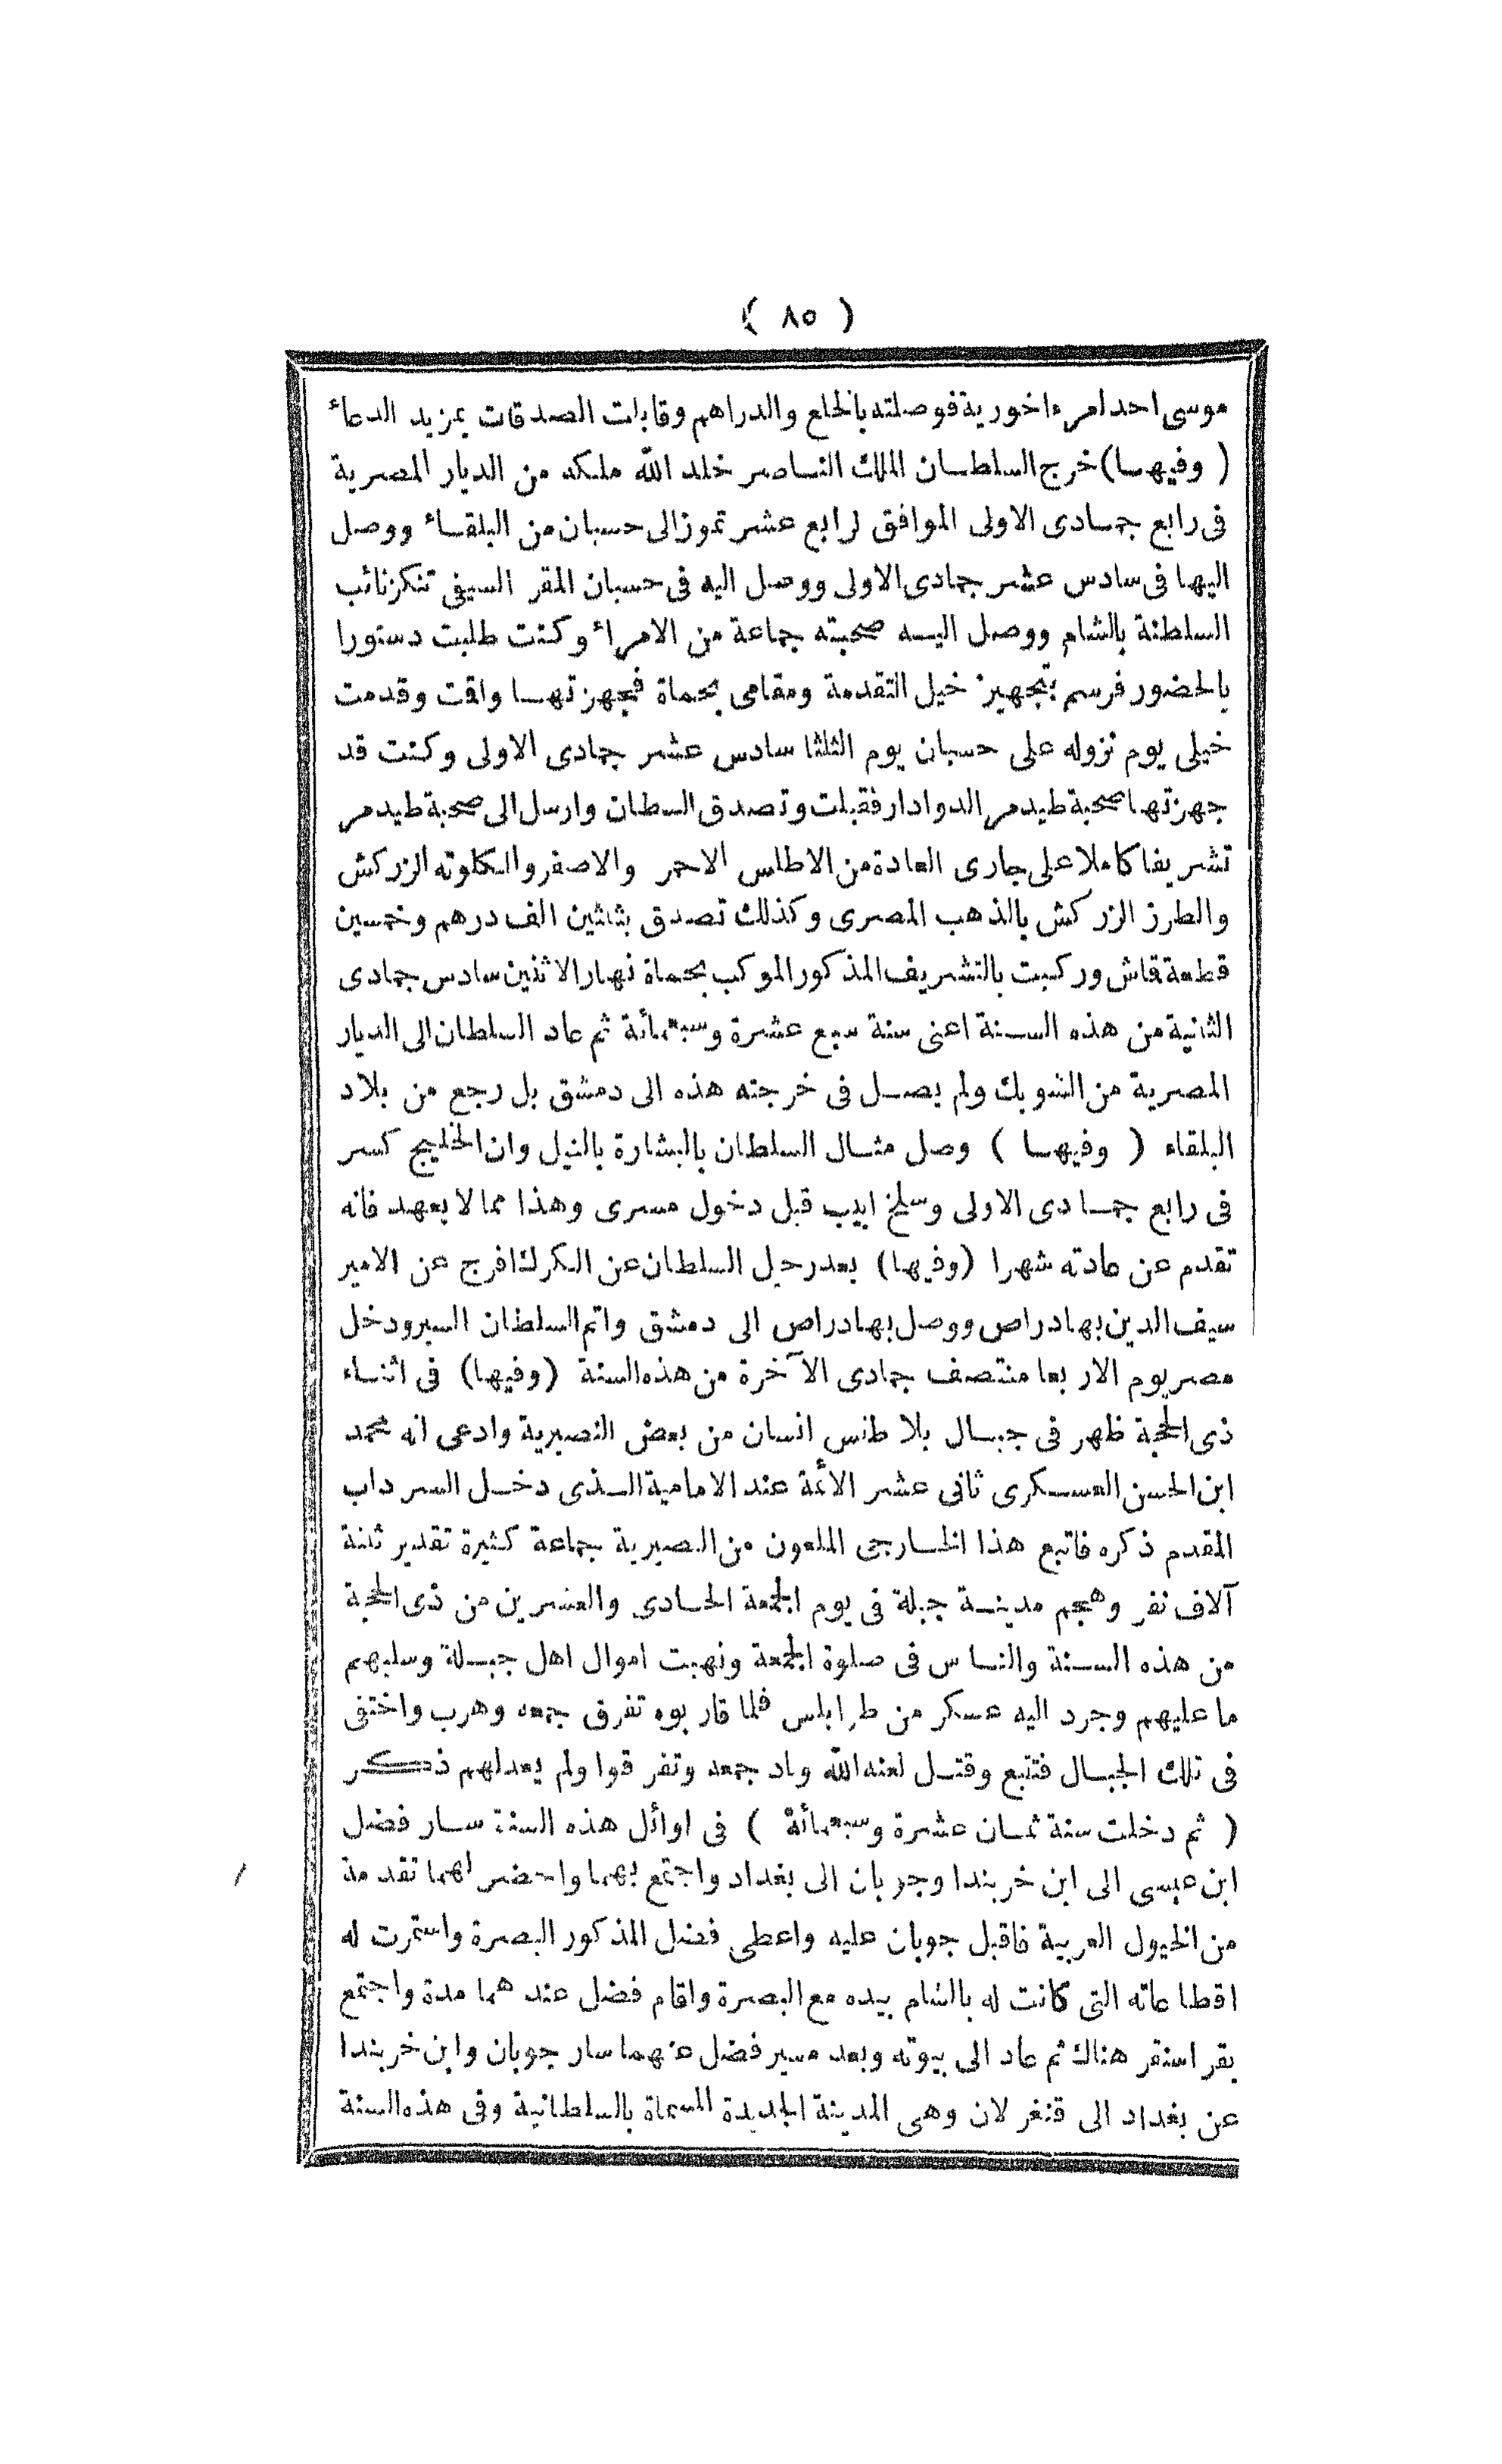 ( ٨٥ )
موسى احد امرء اخورية فوصلته بالخلع والدراهم وقابلت الصدقات بمزيد الدعاء
( وفيهــا ) خرج السلطــان الملك النــاصر خلد الله ملكه من الديار المصرية
فى رابع جمــادى الاولى الموافق لرابع عشر تموز الى حسبان من البلقــاء ووصل
اليها فى سادس عشر جمادى الاولى ووصل اليه فى حسبان المقر السيفى تنكز نائب
السلطنة بالشام ووصل اليــه صحبته جماعة من الامراء وكنت طلبت دستورا
بالحضور فرسم بتجهيز خيل التقدمة ومقامى بحماة فجهزتهــا واقت وقدمت
خيلى يوم نزوله على حسبان يوم الثلثا سادس عشر جمادى الاولى وكنت قد
جهزتها صحبة طيدمر الدوادار فقبلت وتصدق السطان وارسل الى صحبة طيدمر
تشريفا كاملا على جارى العادة من الاطلس الاحمر والاصفر والكلوته الزركش
والطرز الزركش بالذهب المصرى وكذلك تصدق بثلثين الف درهم وخمسين
قطعة قاش وركبت بالتشريف المذكور الموكب بحماة نهار الاثنين سادس جمادى
الثانية من هذه الســنة اعنى سنة سبع عشرة وسبعمائة ثم عاد السلطان الى الديار
المصرية من الشوبك ولم يصــل فى خرجته هذه الى دمشق بل رجع من بلاد
البلقاء ( وفيهــا ) وصل مثــال السلطان بالبشارة بالنيل وان الخليج كسر
فى رابع جمــادى الاولى وسلخ ابيب قبل دخول مسرى وهذا مما لا يعهد فانه
تقدم عن عادته شهرا (وفيها) بعد رحيل السلطان عن الكرك افرج عن الامير
سيف الدين بهادراص ووصل بهادراص الى دمشق واتم السلطان السير ودخل
مصر يوم الاربعا منتصف جمادى الآخرة من هذه السنة (وفيها) فى اثنــاء
ذى الحجة ظهر فى جبــال بلاطنس انسان من بعض النصيرية وادعى انه محمد
ابن الحسن العســكرى ثانى عشر الأئمة عند الامامية الــذى دخــل السرداب
المقدم ذكره فاتبع هذا الخــارجى الملعون من النصيرية جماعة كثيرة تقدير ثلثة
آلاف نفر وهجم مدينــة جبلة فى يوم الجمعة الحــادى والعشرين من ذى الحجة
من هذه الســنة والنــاس فى صلوة الجمعة ونهبت اموال اهل جبــلة وسلبهم
ما عليهم وجرد اليه عسكر من طرابلس فلما قاربوه تفرق جمعه وهرب واختفى
فى تلك الجبــال فتتبع وقتــل لعنه الله وباد جمعه وتفرقوا ولم يعد لهم ذكــر
( ثم دخلت سنة ثمــان عشرة وسبعمائة ) فى اوائل هذه السنة ســار فضل
ابن عيسى الى ابن خربندا وجوبان الى بغداد واجتمع بهما واحضر لهما تقدمة
من الخيول العربية فاقبل جوبان عليه واعطى فضل المذكور البصرة واستمرت له
اقطاعاته التى كانت له بالشام بيده مع البصرة واقام فضل عندهما مدة واجتمع
بقر اسنقر هناك ثم عاد الى بيوته وبعد مسير فضل عنهما سار جوبان وابن خربندا
عن بغداد الى قنغرلان وهى المدينة الجديدة المسماة بالسلطانية وفى هذه السنة